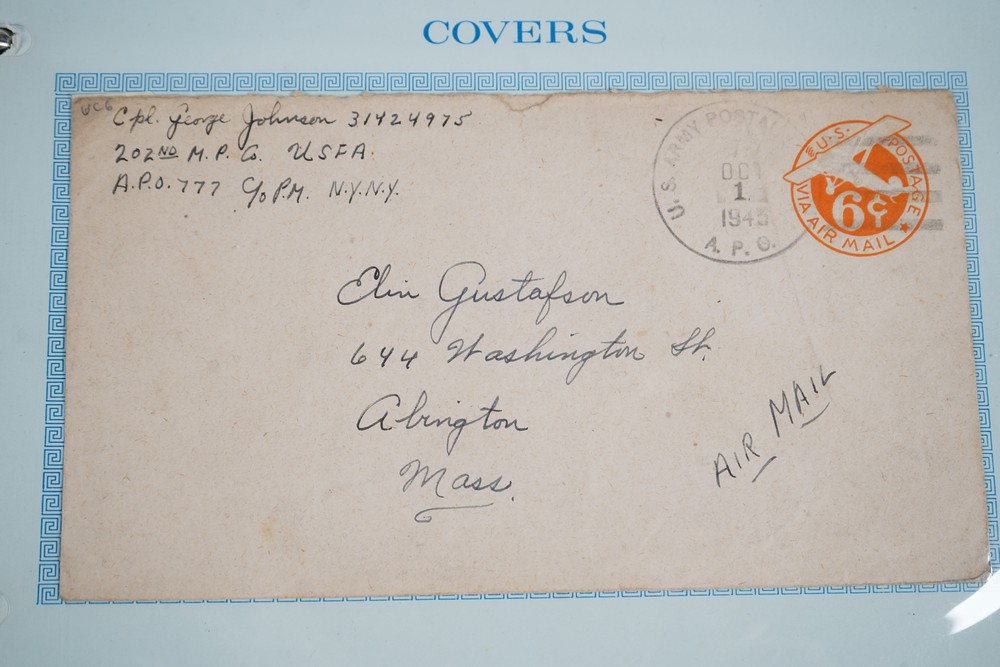 COVERS
Cpl. George Johnson 31424975
202ND M.P. Co. USFA.
A.P.O. 777 C/o P.M. N.Y.N.Y.
U.S. ARMY POSTAL
OCT
1
1945
A. P. O.
U.S. POSTAGE
6¢
VIA AIR MAIL
Elin Gustafson
644 Washington St.
Abington
Mass.
AIR MAIL